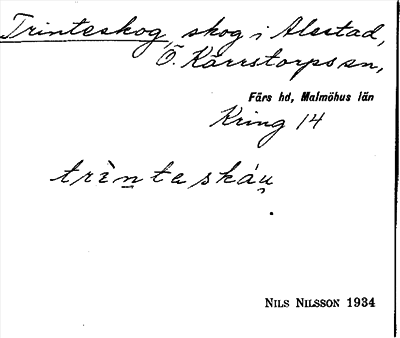 Trinteskog, skog i Alestad,
Ö. Kärrstorps sn,
Färs hd, Malmöhus län
Kring 14
trìn̲te skáu̯
NILS NILSSON 1934